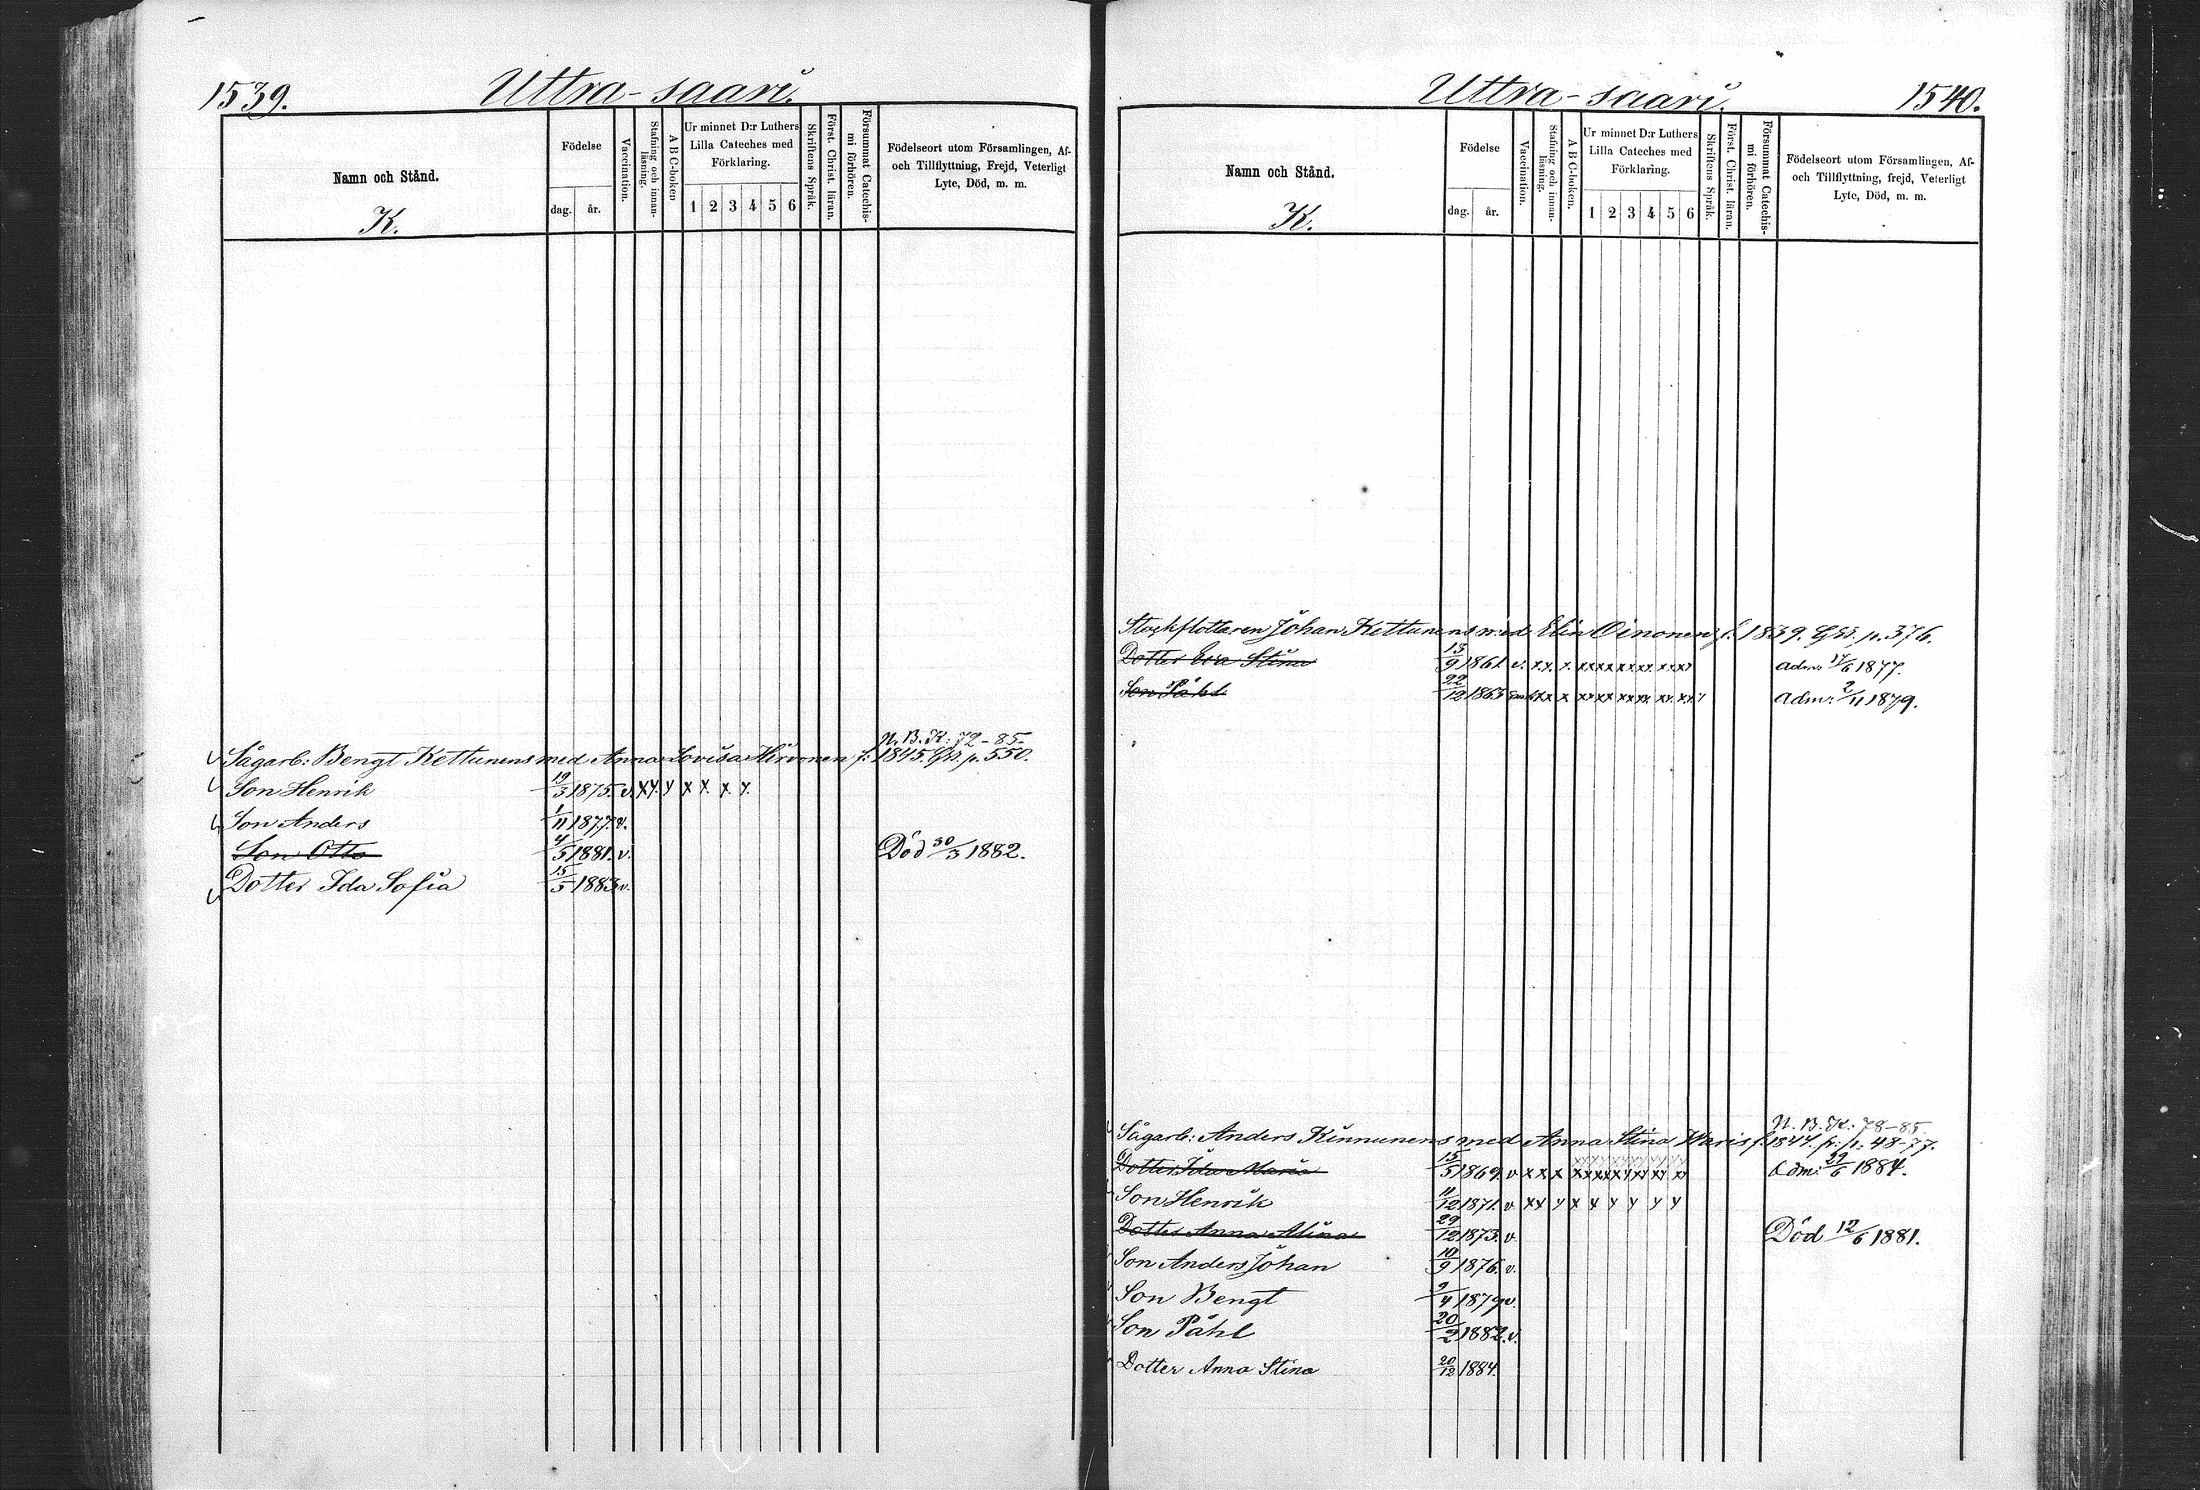 1539.
Uttra-saari.
Namn och Stånd.
K.
Födelse
dag. år.
Vaccination.
Stafning och innanläsning.
A B C-boken
Ur minnet D:r Luthers Lilla Cateches med Förklaring.
1 2 3 4 5 6
Skriftens Språk.
Först. Christ. läran.
Försummat Catechismi förhören.
Födelseort utom Församlingen, Af- och Tillflyttning, Frejd, Veterligt Lyte, Död, m. m.
N. B. K: 72-85.
Sågarb: Bengt Kettunens med Anna Lovisa Hirvonen f: 1845. Gb. p. 550.
Son Henrik 19/3 1875. v. xx. x x x. x. x.
Son Anders 1/11 1877. v.
Son Otto 4/5 1881. v. Död 30/3 1882.
Dotter Ida Sofia 15/5 1883 v.
Uttra-saari.
1540.
Namn och Stånd.
K.
Födelse
dag. år.
Vaccination.
Stafning och innanläsning.
A B C-boken.
Ur minnet D:r Luthers Lilla Cateches med Förklaring.
1 2 3 4 5 6
Skriftens Språk.
Först. Christ. läran.
Försummat Catechismi förhören.
Födelseort utom Församlingen, Af- och Tillflyttning, frejd, Veterligt Lyte, Död, m. m.
Stockflottaren Johan Kettunens med Elin Oinonen f. 1839. p. 376.
Dotter Eva Stina 13/9 1861. v. xx. x. xx xx xx xx xx adm. 17/6 1877.
Son Påhl 22/12 1863 xx x xx xx xx xx xx. xx adm: 2/11 1879.
N. B. K: 78-85.
Sågarb: Anders Kinnunens med Anna Stina Varis f. 1844. p: 48-77.
Dotter Ida Maria 15/5 1869. v xx x xx xx xx xx xx xx Adm: 29/6 1884.
Son Henrik 11/12 1871. v xx x x x x x x x
Dotter Anna Alina 29/12 1873. v. Död 12/6 1881.
Son Anders Johan 10/9 1876. v.
Son Bengt 9/4 1879 v.
Son Påhl 20/2 1882. v.
Dotter Anna Stina 20/12 1884.